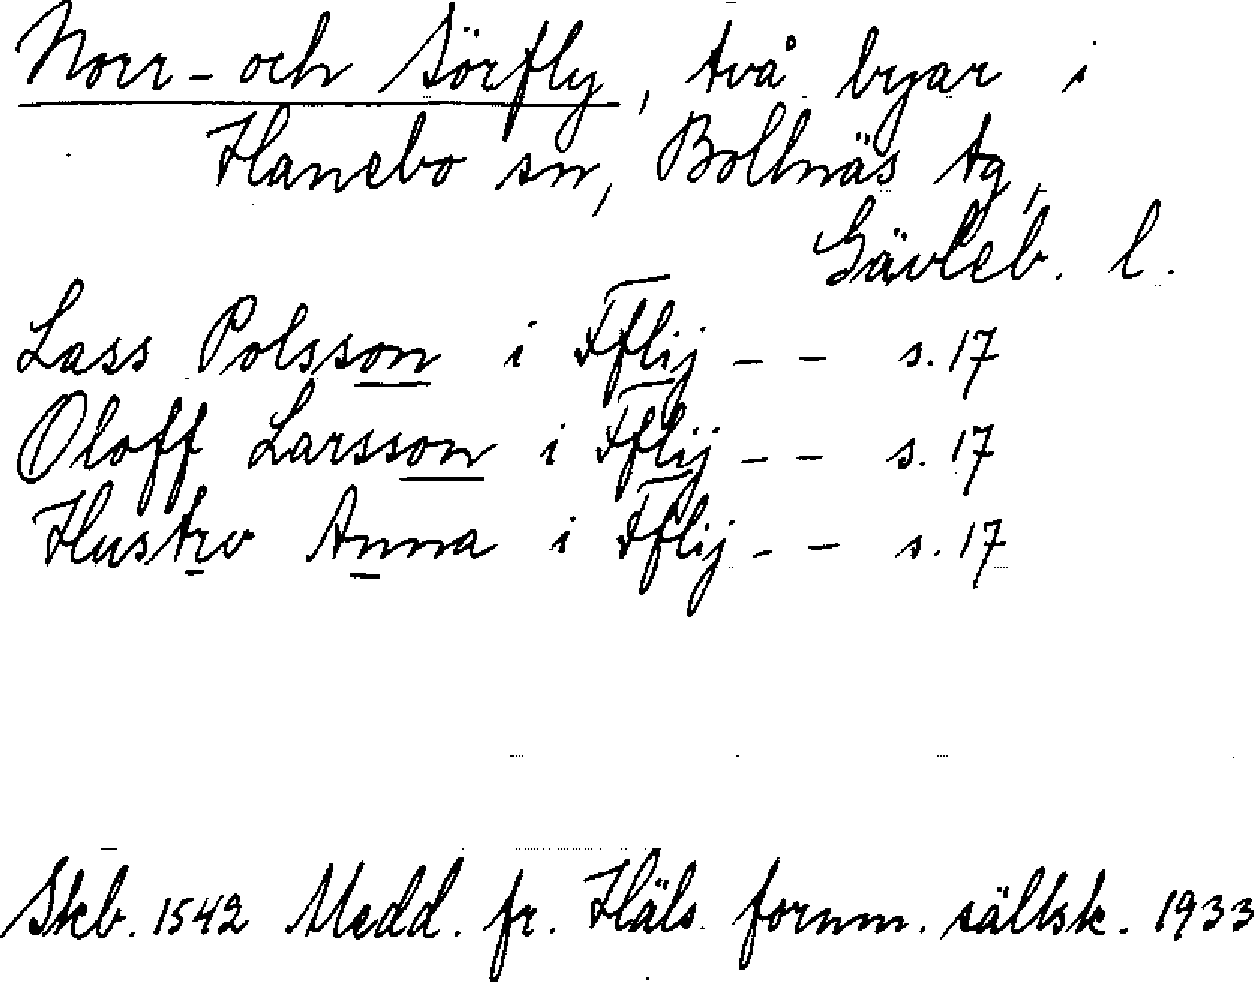 Norr- och Sörfly, två byar i
Hanebo sn, Bollnäs tg,
Gävleb. l.
Lass Polsson i Fflij - - s. 17
Oloff Larsson i Fflij - - s. 17
Hustro Anna i Fflij - - s. 17
Skb. 1542 Medd. fr. Häls. fornm. sällsk. 1933